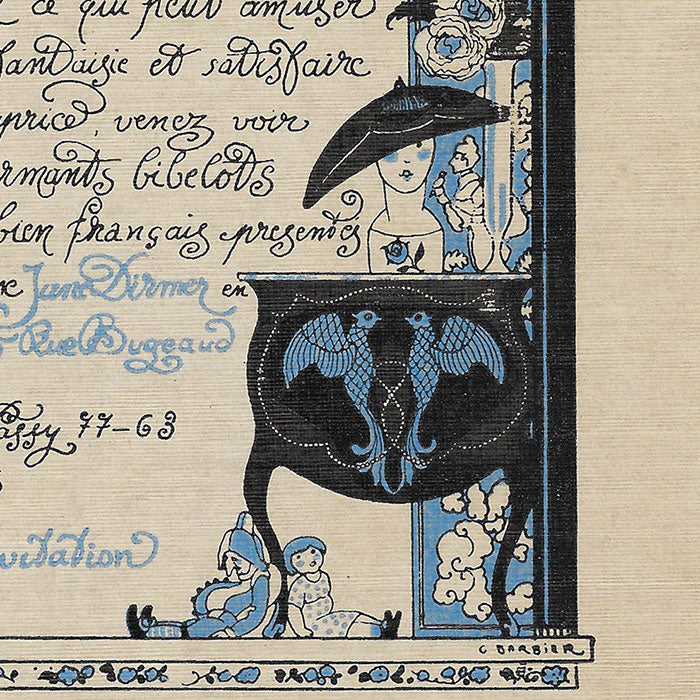 ce qui peut amuser
fantaisie et satisfaire
venez voir
bibelots
bien français presentés
Jane Dirmer en
Rue Bugeaud
Passy 77-63
G BARBIER